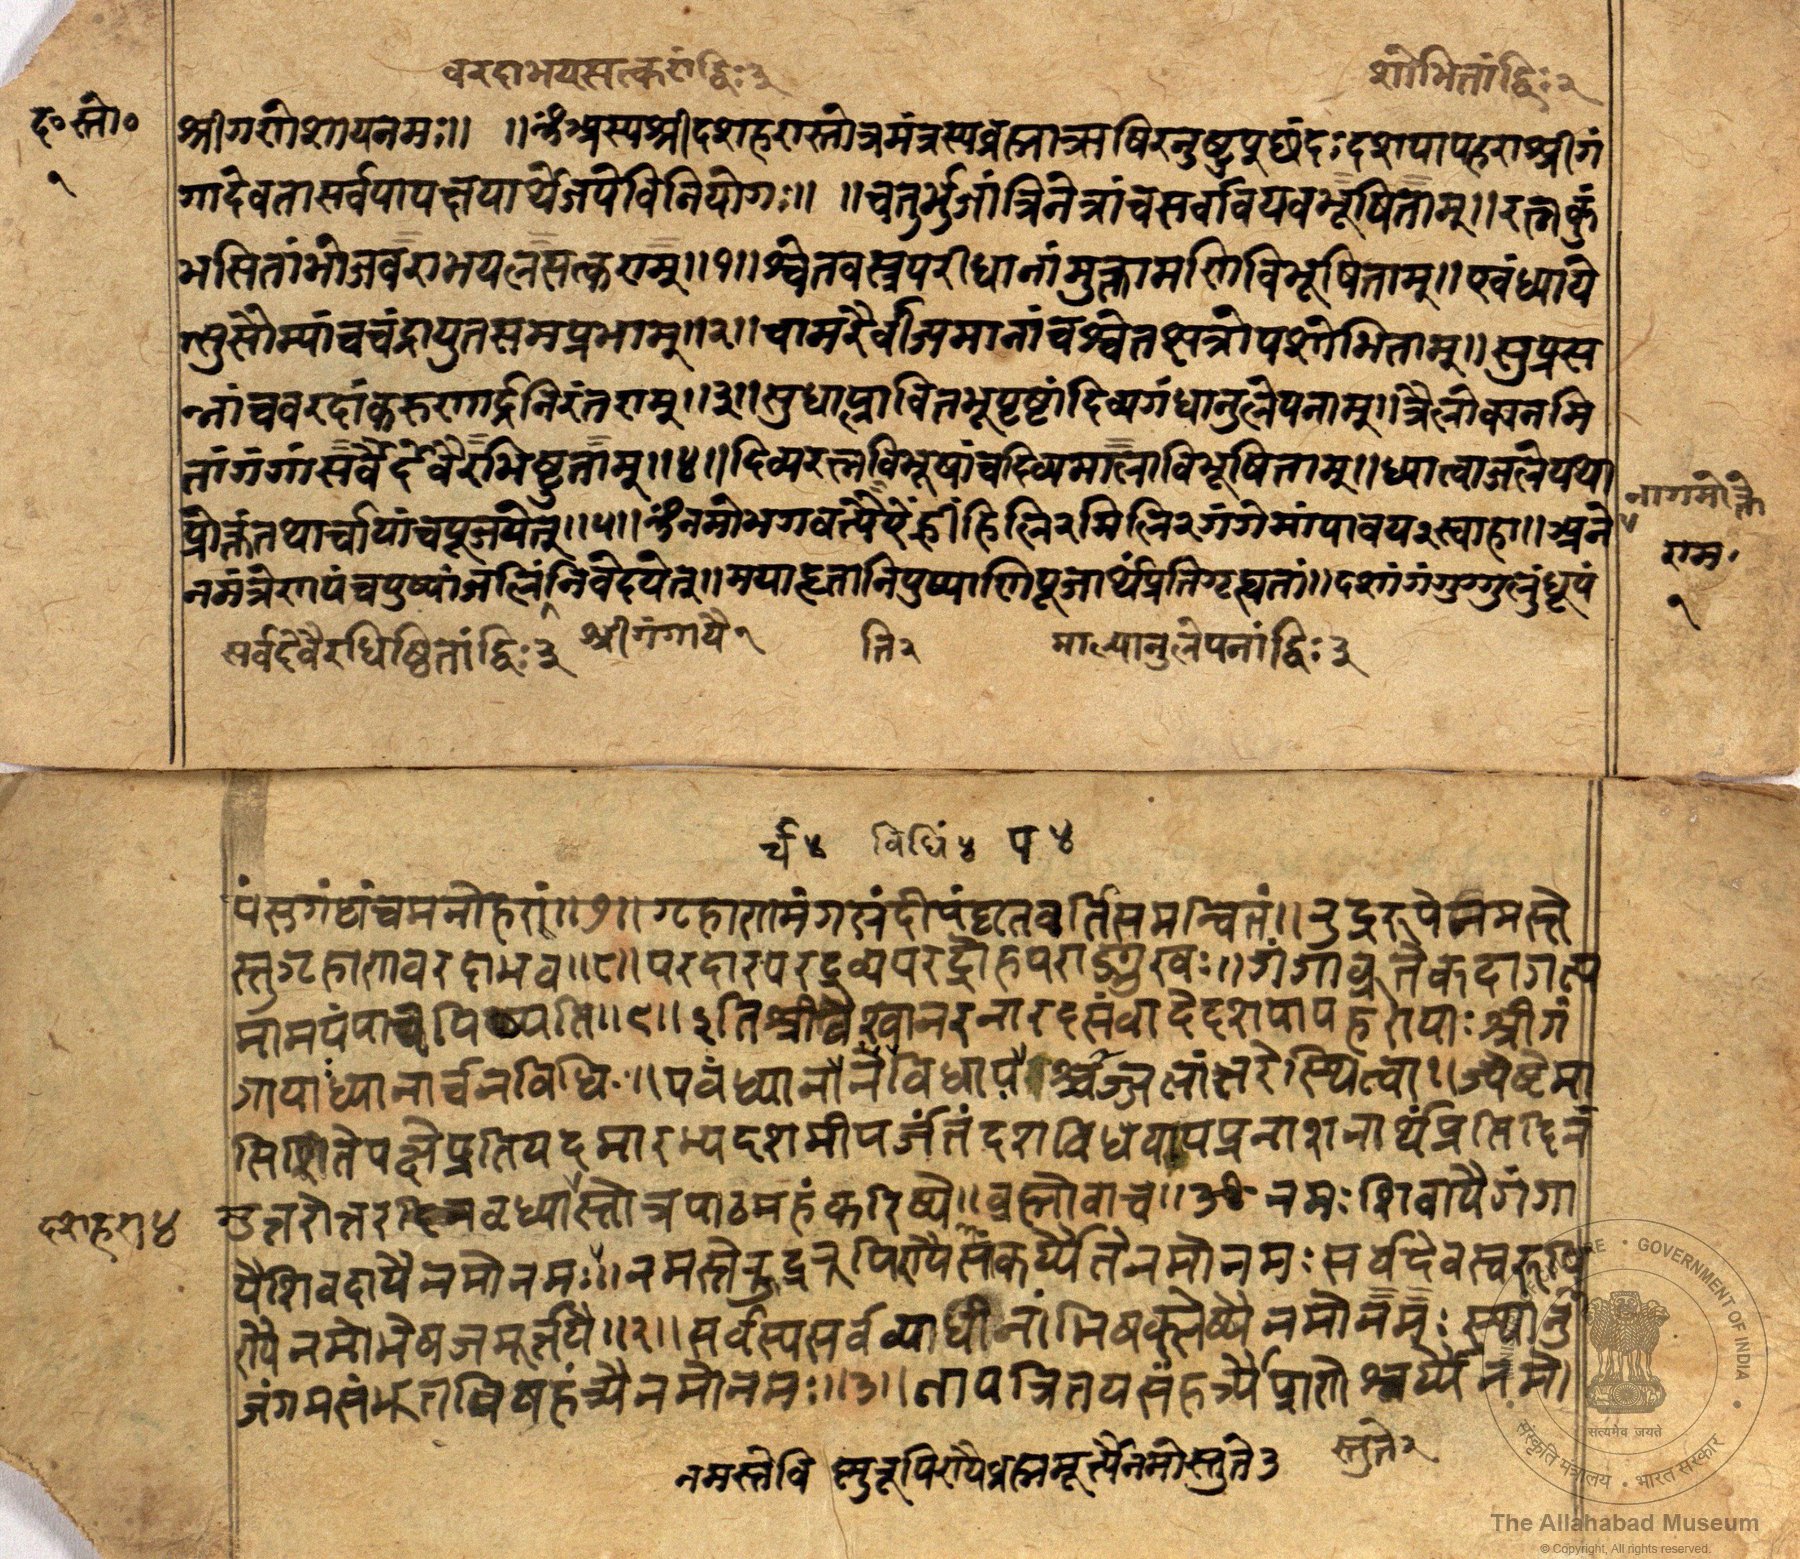 वरदाभयसत्करां द्विः ३
शोभितां द्विः २
द० स्तो०
१
श्रीगणेशायनमः॥ ॥ॐअस्यश्रीदशहरास्तोत्रमंत्रस्यब्रह्माऋषिरनुष्टुप्छंदःदशपापहराश्रीगं
गादेवतासर्वपापक्षयार्थेजपेविनियोगः॥ ॥चतुर्भुजांत्रिनेत्रांचसर्वावयवभूषिताम्॥रत्नकुं
भसितांभोजवराभयलसत्कराम्॥१॥श्वेतवस्त्रपरीधानांमुक्तामणिविभूषिताम्॥एवंध्याये
त्सुसौम्यांचचंद्रायुतसमप्रभाम्॥२॥चामरैर्वीज्यमानांचश्वेतछत्रोपशोभिताम्॥सुप्रस
न्नांचवरदांकरुणार्द्रनिरंतराम्॥३॥सुधाप्लावितभूपृष्टांदिव्यगंधानुलेपनाम्॥त्रैलोक्यनमि
तांगंगांसर्वैर्देवैरभिष्टुताम्॥४॥दिव्यरत्नविभूषांचदिव्यमालाविभूषिताम्॥ध्यात्वाजलेयथा
प्रोक्तंतथार्चायांचपूजयेत्॥५॥ॐनमोभगवत्यैऐंह्रींहिलि२मिलि२गंगेमांपावय२स्वाहा॥अने
नमंत्रेणपंचपुष्पांजलिंनिवेदयेत्॥मयाहृतानिपुष्पाणिपूजार्थंप्रतिगृह्यतां॥दशांगंगुग्गुलुंधूपं
नागमोक्ते
राम
१
सर्वदेवैरधिष्ठितां द्विः ३
श्रीगंगायै १
ति २
माल्यानुलेपनां द्विः ३
र्च ४ विधिं ४ प ४
पंसुगंधंचमनोहरां॥७॥गृहाणमंगलंदीपंघृतवर्तिसमन्वितं॥रुद्ररूपेनमस्ते
स्तुगृहाणवरदाभव॥८॥परदारपरद्रव्यपरद्रोहपराङ्मुखः॥गंगाब्रूतेकदागत्य
मामयंपावयिष्यति॥९॥इतिश्रीवैश्वानरनारदसंवादेदशपापहरायाःश्रीगं
गायाध्यानार्चनविधिः॥एवंध्यानार्चनंविधाय जलांतरेस्थित्वा॥ज्येष्टेमा
सिसितेपक्षेप्रतिपदमारभ्यदशमीपर्जंतंदशविधपापप्रनाशनार्थंप्रतिदिनं
दशहरा ४
उत्तरोत्तर वृध्यास्तोत्रपाठमहंकरिष्ये॥ब्रह्मोवाच॥ॐनमःशिवायैगंगा
यैशिवदायैनमोनमः॥नमस्तेरुद्ररूपिण्यैसंकर्य्यैतेनमोनमःसर्वदेवस्वरूपि
ण्यैनमोभेषजमूर्तये॥२॥सर्वस्यसर्वव्याधीनांभिषक्श्रेष्ठ्यैनमोनमःस्थानु
जंगमसंभूतविषहंत्र्यैनमोनमः॥३॥तापत्रितयसंहत्र्यैप्राणेश्वर्य्यैनमो
नमस्तेविष्णुरूपिण्यैब्रह्ममूर्त्यैनमोस्तुते ३
स्तुते २
संस्कृति मंत्रालय • भारत सरकार
GOVERNMENT OF INDIA
सत्यमेव जयते
The Allahabad Museum
© Copyright, All rights reserved.